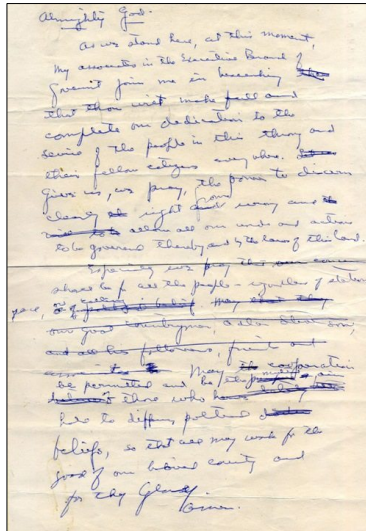 Almighty God.
As we stand here, at this moment,
my associates in the Executive Branch of
Gov'mt join me in beseeching
that thou wilt make full and
complete our dedication to the
service of the people in this throng and
their fellow citizens everywhere.
Give us, we pray, the power to discern
clearly right from wrong and
allow all our words and actions
to be governed thereby and by the laws of this land.
Especially we pray that our concern
shall be for all the people - regardless of station
race, or calling
May cooperation
be permitted and be the mutual aim
those who
hold to differing political
beliefs, so that all may work for the
good of our beloved country and
for thy Glory. Amen.